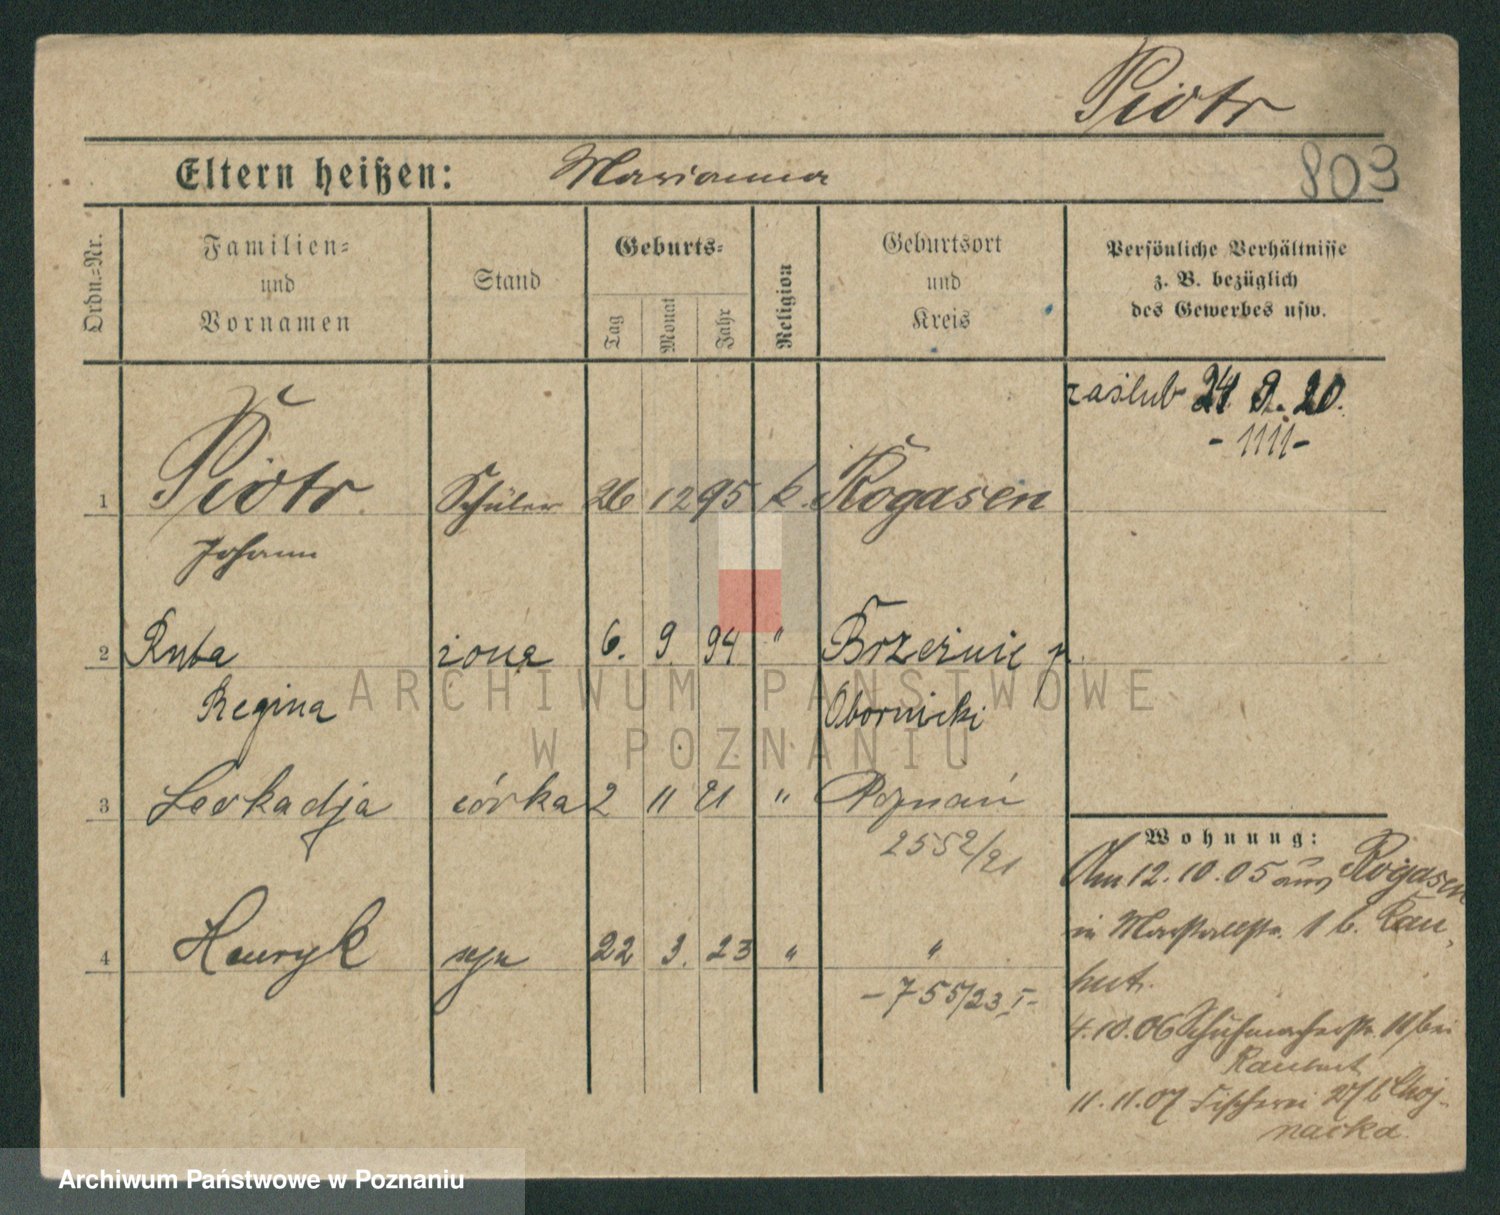 Piotr
Eltern heißen: Marianna
803
Ordn.-Nr.
Familien-
und
Vornamen
Stand
Geburts-
Tag
Monat
Jahr
Religion
Geburtsort
und
Kreis
Persönliche Verhältnisse
z. B. bezüglich
des Gewerbes usw.
zaślub 24. 9. 20.
- 1111 -
1 Piotr Schüler 26 12 95 k. Rogasen
Johann
2 Ruta żona 6. 9. 94 " p.
Regina Obornicki
3 Leokadja córka 2 11 21 " Poznań
2552/21
4 Henryk syn 22 3. 23 " "
- 755/23 I -
Wohnung:
Am 12.10.05 aus Rogasen
in 1 b. Rau-
hut.
4.10.06 Schuhmacherstr. 11 bei
Rauhut
11.11.07 Fischerei b Choj-
nacka
ARCHIWUM PAŃSTWOWE
W POZNANIU
Archiwum Państwowe w Poznaniu